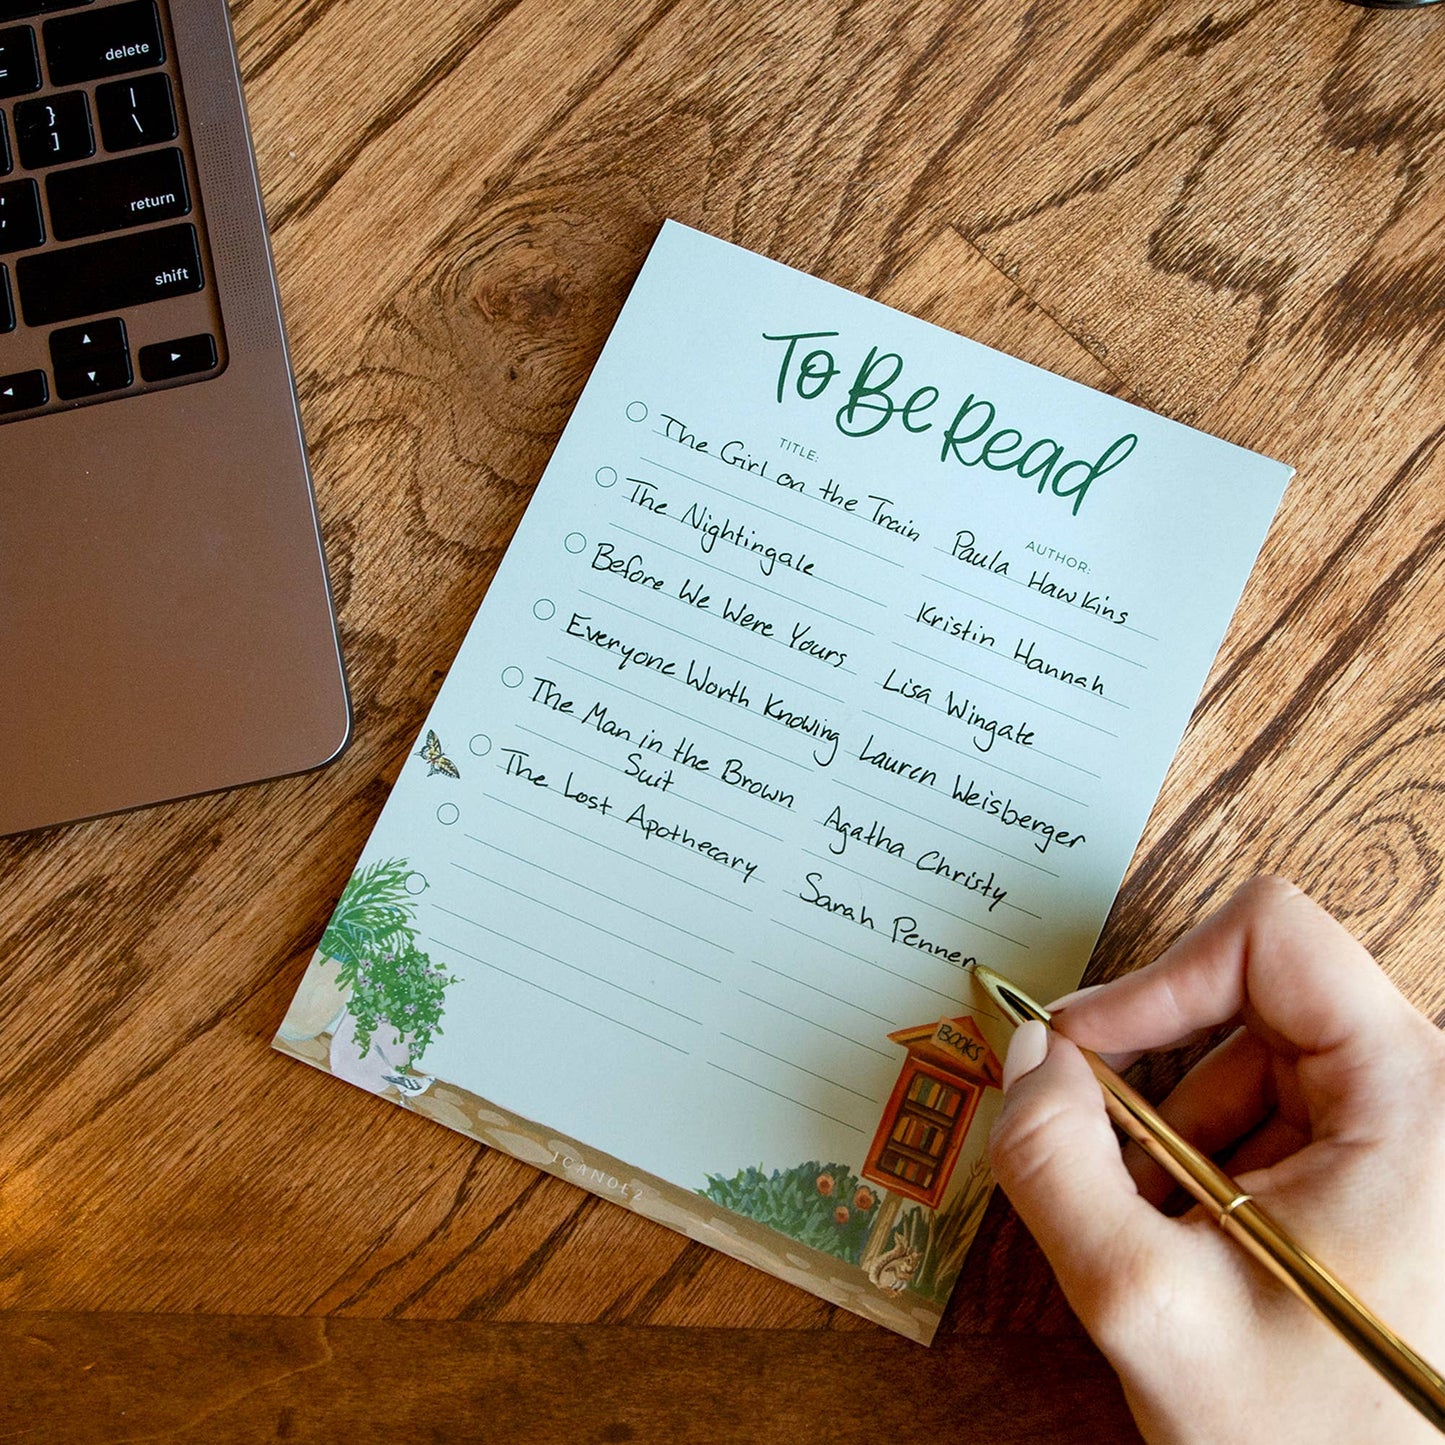 delete
}
]
|
\
return
shift
To Be Read
TITLE:
AUTHOR:
The Girl on the Train Paula Hawkins
The Nightingale Kristin Hannah
Before We Were Yours Lisa Wingate
Everyone Worth Knowing Lauren Weisberger
The Man in the Brown Agatha Christy
Suit
The Lost Apothecary Sarah Penner
BOOKS